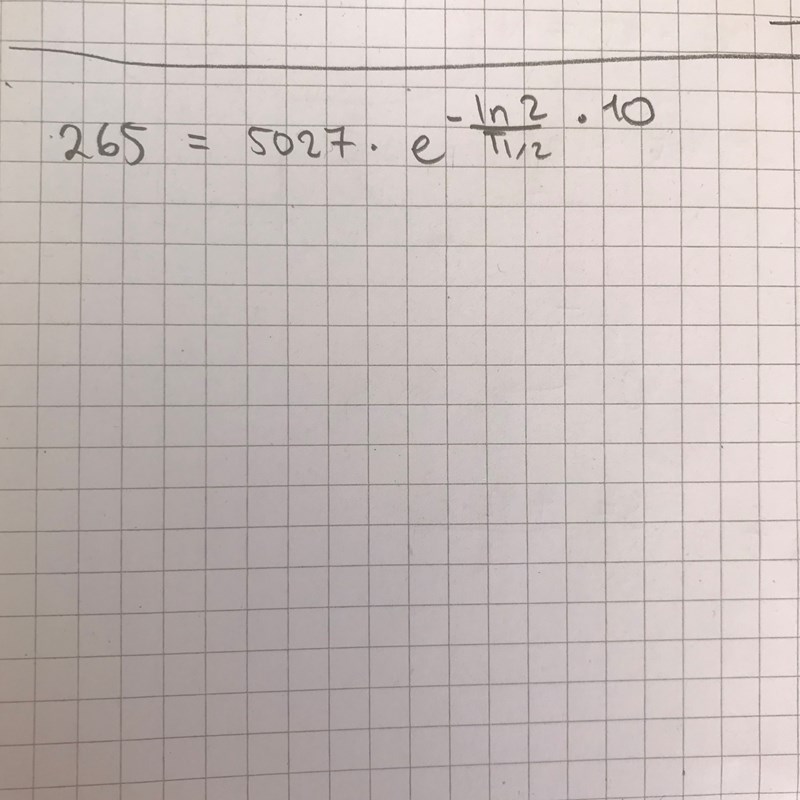 265 = 5027 · e^(-ln 2/T1/2 · 10)